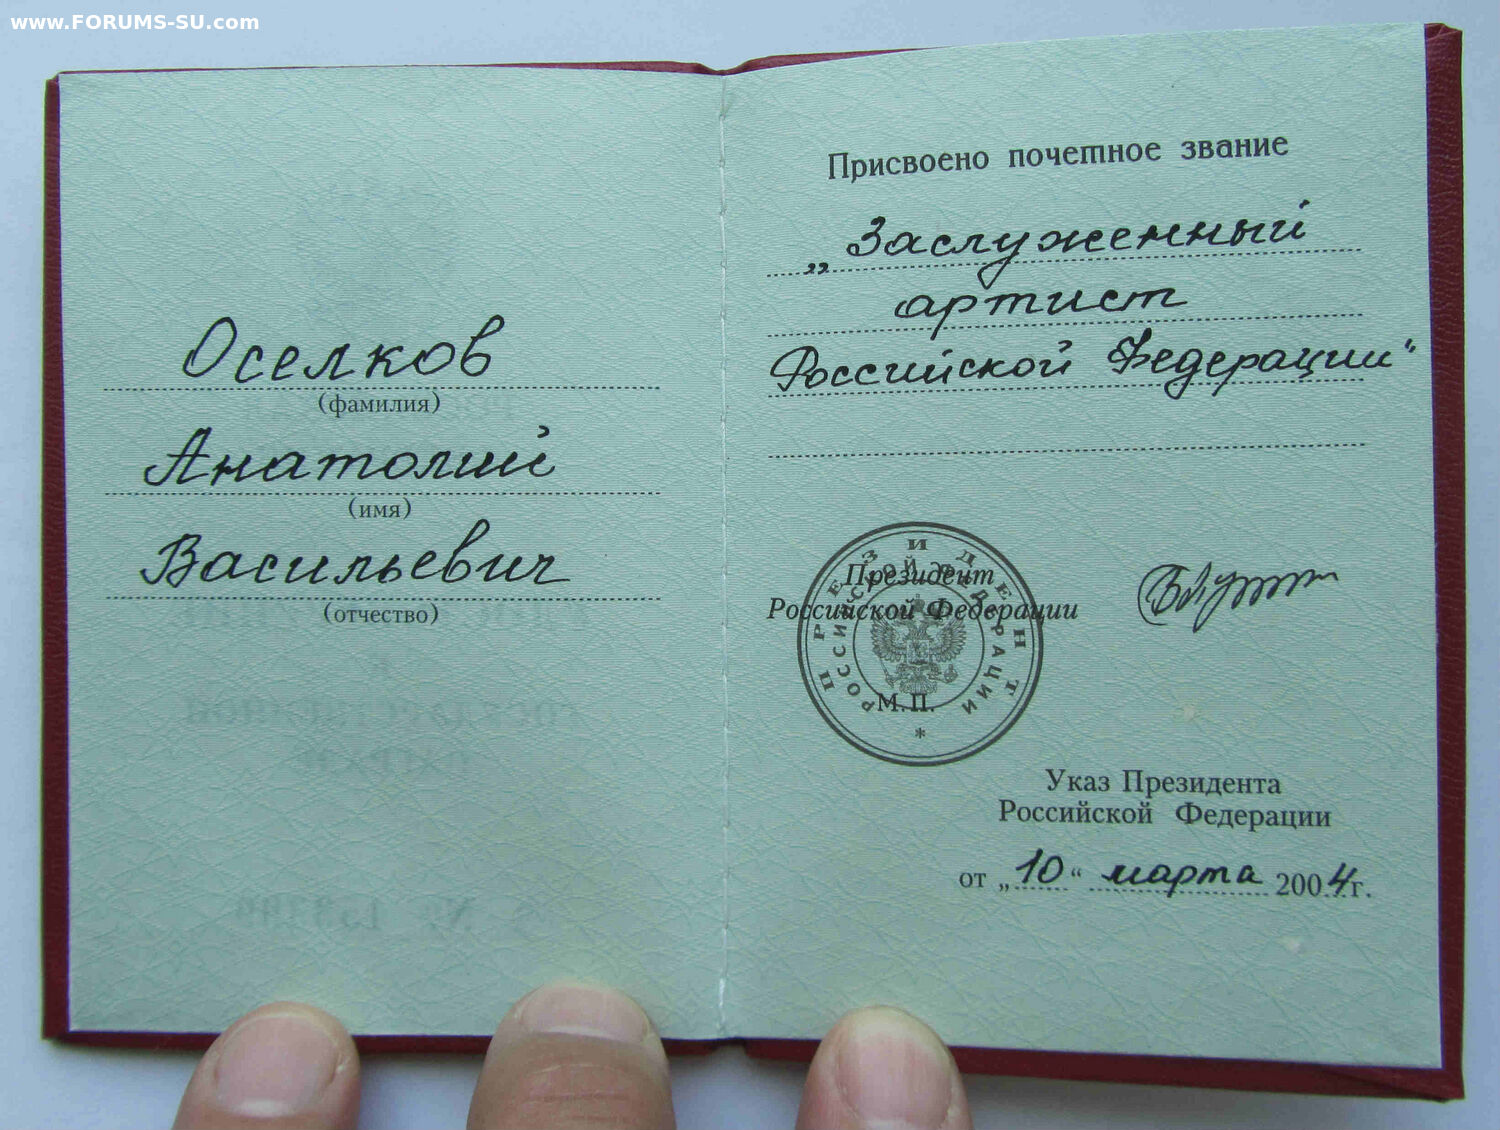 www.FORUMS-SU.com
Оселков
(фамилия)
Анатолий
(имя)
Васильевич
(отчество)
Присвоено почетное звание
„Заслуженный
артист
Российской Федерации“
Президент
Российской Федерации
ПРЕЗИДЕНТ
РОССИЙСКОЙ ФЕДЕРАЦИИ
М.П.
*
Указ Президента
Российской Федерации
от „10“ марта 2004г.